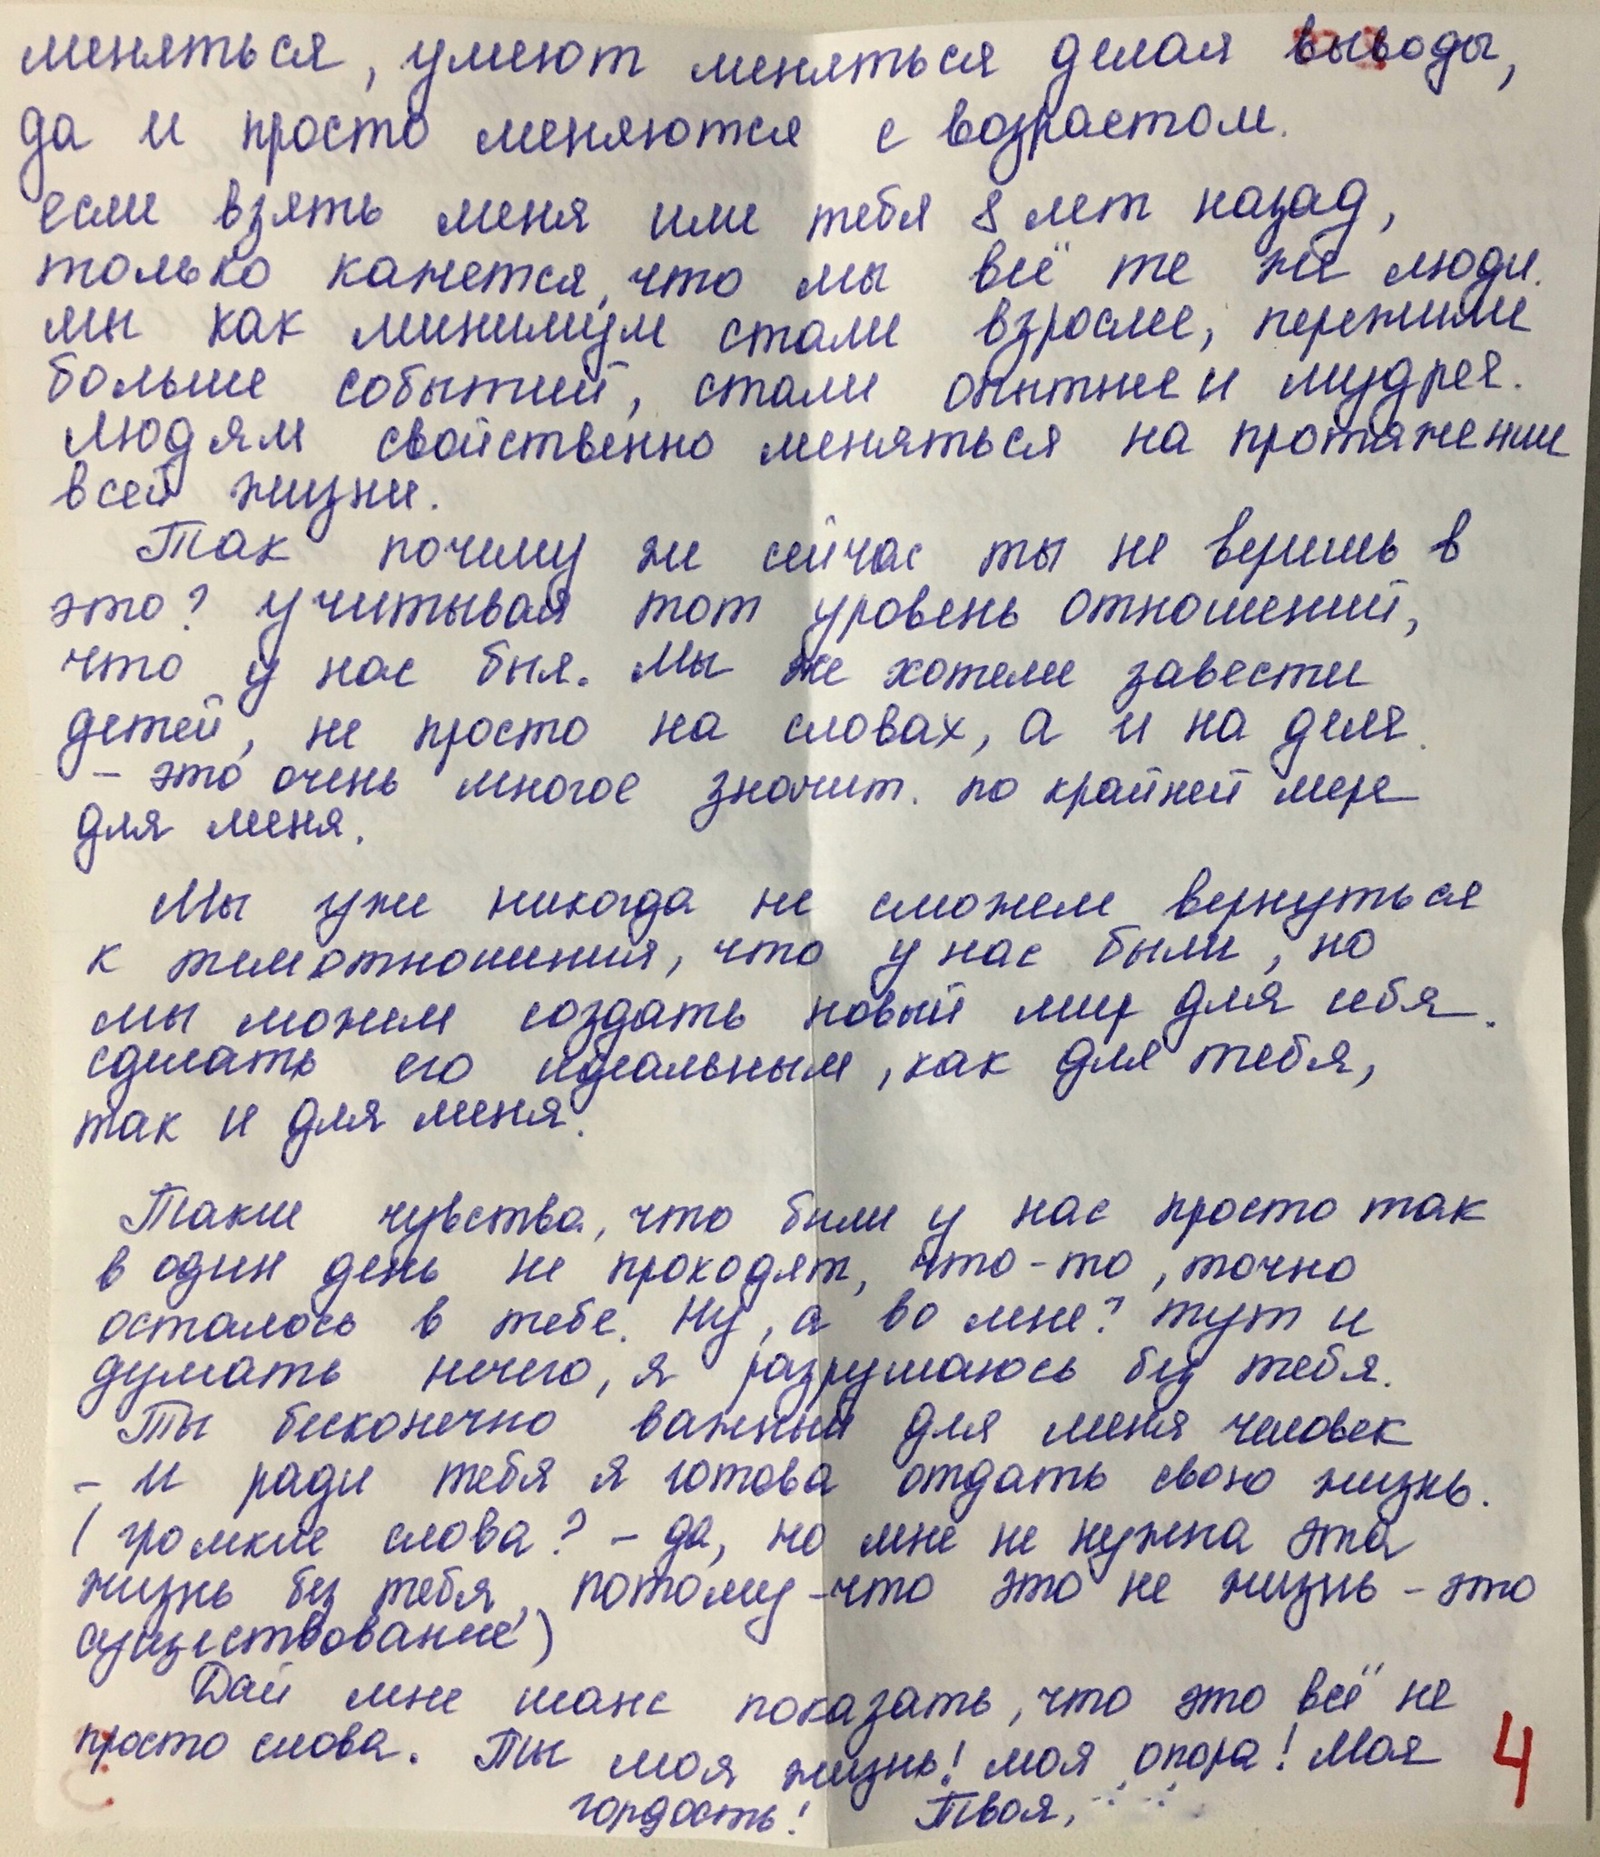 меняться, умеют меняться делая выводы,
да и просто меняются с возрастом.
если взять меня или тебя 8 лет назад,
только кажется, что мы всё те же люди.
мы как минимум стали взрослее, пережили
больше событий, стали опытнее и мудрее.
Людям свойственно меняться на протяжении
всей жизни.
Так почему же сейчас ты не веришь в
это? учитывая тот уровень отношений,
что у нас был. Мы же хотели завести
детей, не просто на словах, а и на деле.
- это очень многое значит. по крайней мере
для меня.
Мы уже никогда не сможем вернуться
к тем отношения, что у нас были, но
мы можем создать новый мир для себя.
сделать его идеальным, как для тебя,
так и для меня.
Такие чувства, что были у нас просто так
в один день не проходят, что-то, точно
осталось в тебе. Ну, а во мне? тут и
думать нечего, я разрушаюсь без тебя.
Ты бесконечно важный для меня человек
- и ради тебя я готова отдать свою жизнь.
(громкие слова? - да, но мне не нужна эта
жизнь без тебя, потому-что это не жизнь - это
существование)
Дай мне шанс показать, что это всё не
просто слова. Ты моя жизнь! моя опора! Моя
гордость! Твоя,
4